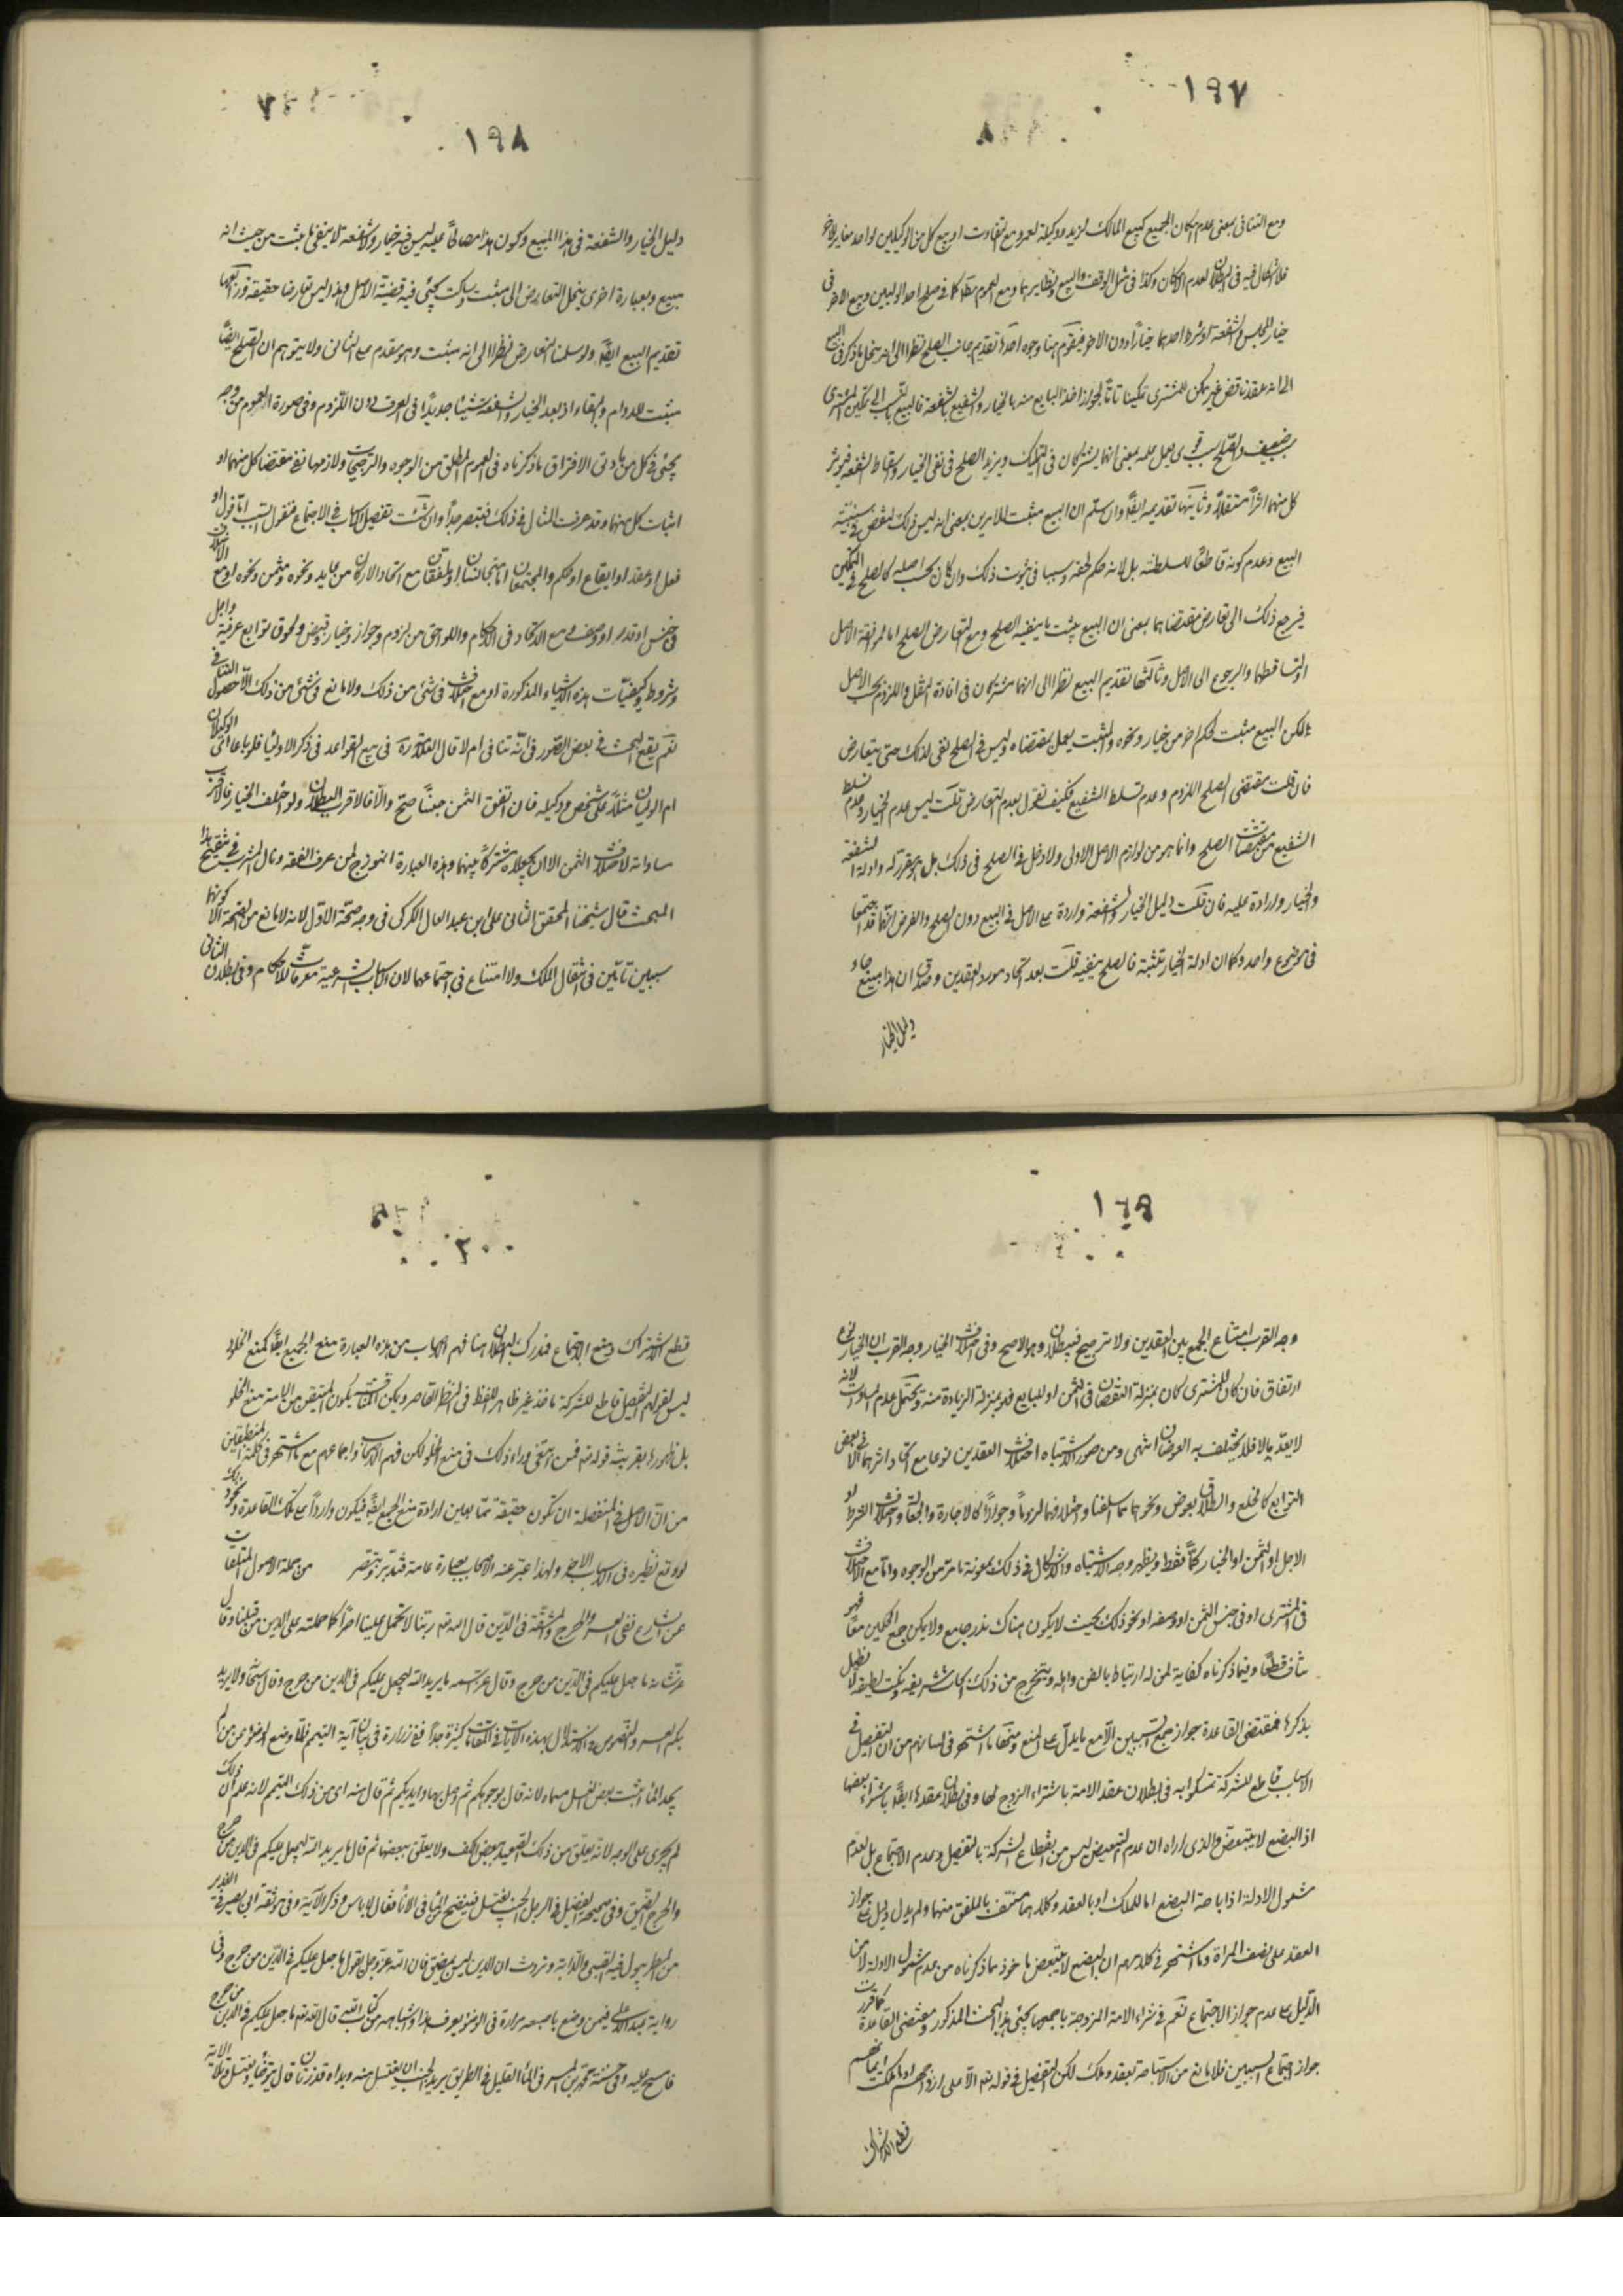 ١٩٧
ومع التنافى بمعنى عدم امكان الجميع كبيع المالك لزيد ووكيله لعمرو مع التفاوت او بيع كل من الوكيلين لواحد مغاير للاخر
فلا اشكال فيه فى البطلان لعدم الامكان وكذا فى مثل الوقف والبيع ونظايرهما ومع العموم مطلقا كما فى صلح احد الوليين وبيع الاخر فى
خيار المجلس والشفعة او شرط احدهما خيارا دون الاخر فيقوم هنا وجوه احدها تقديم جانب الصلح نظرا الى انه ينحل ما ذكر فى البيع
الى انه عقد ناقص غير ممكن للمشترى تمكينا تاما لجواز اخذ البايع منه بالخيار والشفيع بالشفعة فالبيع بالنسبة الى تمكين المشترى
ضعيف والصلح سبب قوى يعمل عمله بمعنى انهما يشتركان فى التمليك ويزيد الصلح فى نفى الخيار واسقاط الشفعة فيؤثر
كل منهما اثرا مستقلا وثانيها تقديمه ايضا وان سلم ان البيع مثبت للامرين بمعنى انه ليس ذلك لنقص فى سببية
البيع وعدم كونه قاطعا للسلطنة بل لانه حكم لحقه وسببا فى ثبوت ذلك وان كان بحسب اصله كالصلح فى التمكين
فيرجع ذلك الى تعارض مقتضاهما بمعنى ان البيع يثبت ما ينفيه الصلح ومع التعارض الصلح اما لموافقة الاصل
او لتساقطهما والرجوع الى الاصل وثالثها تقديم البيع نظرا الى انهما مشتركان فى افادة النقل واللزوم بحسب الاصل
لكن البيع مثبت لحكم اخر من خيار ونحوه والمثبت يعمل بمقتضاه وليس فى الصلح نفى لذلك حتى يتعارض
فان قلت مقتضى الصلح اللزوم وعدم تسلط الشفيع فكيف تقول بعدم التعارض قلت ليس عدم الخيار وعدم تسلط
الشفيع من مقتضيات الصلح وانما هو من لوازم الاصل الاولى ولا دخل فى الصلح فى ذلك بل هو مقرر له وادلة الشفعة
والخيار واردة عليه فان قلت دليل الخيار والشفعة واردة على الاصل فى البيع دون الصلح والفرض انهما قد اجتمعا
فى موضوع واحد وكما ان ادلة الخيار تثبته فالصلح ينفيه قلت بعد اتحاد مورد العقدين وصدق ان هذا مبيع جاء
دليل الخيار
١٩٨
دليل الخيار والشفعة فى هذا المبيع وكون هذا مصالحا عليه ليس فيه خيار ولا شفعة لا ينفى ما يثبت من حيث انه
مبيع وبعبارة اخرى ينحل التعارض الى مثبت وساكت يجئ فيه قضية الاصل وهذا ليس تعارضا حقيقة
تقديم البيع ايضا ولو سلمنا التعارض نظرا الى انه مثبت وهو مقدم على الثانى ولا يتوهم ان الصلح ايضا
مثبت للدوام والبقاء اذ بعد الخيار والشفعة شيئا جديدا فى العرف دون اللزوم وفى صورة العموم من وجه
يجئ فى كل من مادتى الافتراق ما ذكرناه فى العموم المطلق من الوجوه والترجيحات ولازمها نفى مقتضا كل منهما او
اثبات كل منهما وقد عرفت المثال فى ذلك فتبصر جدا وان شئت تفصيل الاسباب فى الاجتماع فنقول السبب اما قول او
فعل او عقد او ايقاع او حكم والمجتمعان اما متجانسان او مختلفان مع اتحاد الاركان من عايد ونحوه ومثمن ونحوه او مع الاختلاف
فى جنس او قدر او وصف مع الاتحاد فى الاحكام واللواحق من لزوم وجواز وخيار وقبض ولحوق توابع عرفية واجل
وشروط وكيفيات هذه الاشياء المذكورة او مع اختلاف فى شئ من ذلك ولا مانع فى شئ من ذلك الا حصول التنافى
نعم يقع البحث فى بعض الصور فى انه تنافى ام لا قال العلامة ره فى بيع القواعد فى ذكر الاولياء فلو باعا اى الوكيلان
ام الوليان مثلا على شخص ووكيله فان اتفق الثمن جنسا صح والا فالاقرب البطلان ولو اختلف الخيار فالاقرب
مساواته لاختلاف الثمن الا ان يجعلاه مشتركا بينهما وهذه العبارة انموذج لمن عرف الفقه ونال المشرب فى تنقيح هذا
المبحث قال شيخنا المحقق الثانى على ابن عبد العال الكركى فى وجه صحة الاول لانه لا مانع من الصحة الا كونهما
سببين تامين فى انتقال الملك ولا امتناع فى اجتماعهما لان الاسباب الشرعية معرفات للاحكام وفى بطلان الثانى
١٩٩
وجه القرب امتناع الجمع بين العقدين ولا ترجيح فيبطلان وهو الاصح وفى اختلاف الخيار وجه القرب ان الخيار له جزء
ارتفاق فان كان للمشترى كان بمنزلة النقصان فى الثمن او للبايع فهو بمنزلة الزيادة منه ويحتمل عدم المساوات لانه
لا يعد مالا فلا يختلف به العوضان انتهى ومن صور الاشتباه اختلاف العقدين نوعا مع اتحاد اثرهما الا فى بعض
التوابع كالخلع والطلاق بعوض ونحوهما مما اسلفنا واختلافهما لزوما وجوازا كالاجارة والجعالة واختلاف الشرط او
الاجل او الثمن او الخيار كما فقط ويظهر وجه الاشتباه والاشكال فى ذلك بمعونة ما مر من الوجوه واما مع الاختلاف
فى المشترى او فى جنس الثمن او وصفه او نحو ذلك بحيث لا يكون هناك قدر جامع ولا يمكن جمع الحكمين معا فهو
متناف قطعا وفيما ذكرناه كفاية لمن له ارتباط بالفن واهله ويتخرج من ذلك ابحاث شريفة ونكت لطيفة لا نطيل
بذكرها فمقتضى القاعدة جواز جمع السببين الا مع ما يدل على المنع ومنها ما اشتهر فى لسانهم من ان التفصيل فى
الاسباب قاطع للشركة تمسكوا به فى بطلان عقد الامة باشتراء الزوج لها وفى بطلان عقدها ايضا باشتراء بعضها
اذ البضع لا يتبعض والذى اراه ان عدم التبعيض ليس من انقطاع الشركة بالتفصيل وعدم الاجتماع بل لعدم
شمول الادلة اذ اباحة البضع اما بالملك او بالعقد وكلاهما منتف بالملفق منهما ولم يدل دليل على جواز
العقد على نصف المراة وما اشتهر فى كلامهم ان البضع لا يتبعض ماخوذ مما ذكرناه من عدم شمول الادلة لا من
الدليل على عدم جواز الاجتماع نعم فى شراء الامة المزوجة باجمعها يجئ هذا البحث المذكور ومقتضى القاعدة كما قررت
جواز اجتماع السببين فلا مانع من الاستباحة بعقد وملك لكن التفصيل فى قوله تعم الا على ازواجهم او ما ملكت ايمانهم
قطع الاشتراك
٢٠٠
قطع الاشتراك ومنع الاجتماع فمدرك البطلان هنا فهم الاصحاب من هذه العبارة منع الجميع ايضا كمنع الخلو
ليس لقولهم التفصيل قاطع للشركة ماخذ غير ظاهر اللفظ فى النظر القاصر ويمكن المتيقن من الاية منع الخلو
بل ظهورها بقرينة قوله تعم فمن ابتغى وراء ذلك فى منع الخلو لكن فهم الاصحاب واجماعهم مع ما اشتهر فى كلمة المنطقيين
من ان الاصل فى المنفصلة ان تكون حقيقة مما يعين ارادة منع الجمع ايضا فيكون واردا على تلك القاعدة ونحو ذلك
لو وقع نظيره فى الاسباب الاخر ولهذا عبر عنه الاصحاب بعبارة عامة فتدبر وتبصر من جملة الاصول المتلقات
عن الشارع نفى العسر والحرج والمشقة فى الدين قال الله تعم ربنا لا تحمل علينا اصرا كما حملته على الذين من قبلنا وقال
عز شانه ما جعل عليكم فى الدين من حرج وقال عز اسمه ما يريد الله ليجعل عليكم فى الدين من حرج وقال ولا يريد
بكم العسر والنصوص فى الاستدلال بهذه الايات فى المقامات كثيرة جدا ففى زرارة فى بيان آية التيمم فلما وضع الوضوء عمن لم
يجد الماء اثبت بعض الغسل مسحا لانه قال بوجوهكم ثم وصل بها وايديكم ثم قال منه اى من ذلك التيمم لانه علم ان ذلك
لم يجرى على الوجه لانه يعلق من ذلك الصعيد ببعض الكف ولا يعلق ببعضها ثم قال ما يريد الله ليجعل عليكم فى الدين من حرج
والحرج الضيق وفى صحيحة الفضيل فى الرجل الجنب يغتسل فينضح الماء فى الاناء فقال لا باس وذكر الآية وفى موثقة ابى بصير فى الغدير
من المطر يبول فيه الصبى والدابة وتروث ان الدين ليس بمضيق فان الله عز وجل يقول ما جعل عليكم فى الدين من حرج وفى
رواية عبد الاعلى فيمن وضع باصبعه مرارة فى الوضوء يعرف هذا واشباهه من كتاب الله قال الله تعم ما جعل عليكم فى الدين من حرج
فامسح عليه وفى حسنة محمد بن الميسر فى الماء القليل فى الطريق يريد الجنب ان يغتسل منه ويداه قذرتان قال يتوضأ ويغتسل وتلا الاية